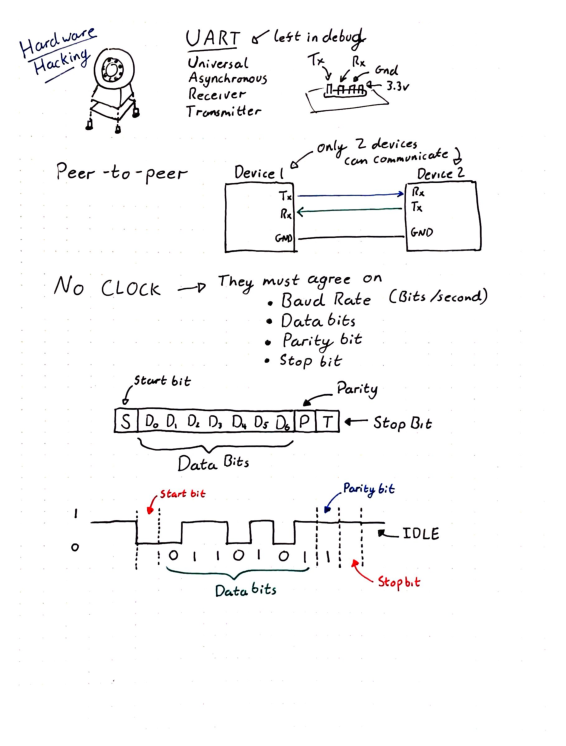 Hardware
Hacking
UART left in debug
Universal
Asynchronous
Receiver
Transmitter
Tx Rx Gnd
3.3v
Peer-to-peer
only 2 devices
can communicate
Device 1
Device 2
Tx
Rx
GND
Rx
Tx
GND
No CLOCK → They must agree on
• Baud Rate (Bits/second)
• Data bits
• Parity bit
• Stop bit
Start bit
Parity
S D0 D1 D2 D3 D4 D5 D6 P T ← Stop Bit
Data Bits
Start bit
Parity bit
1
IDLE
0
0 1 1 0 1 0 1 1
Data bits
Stop bit